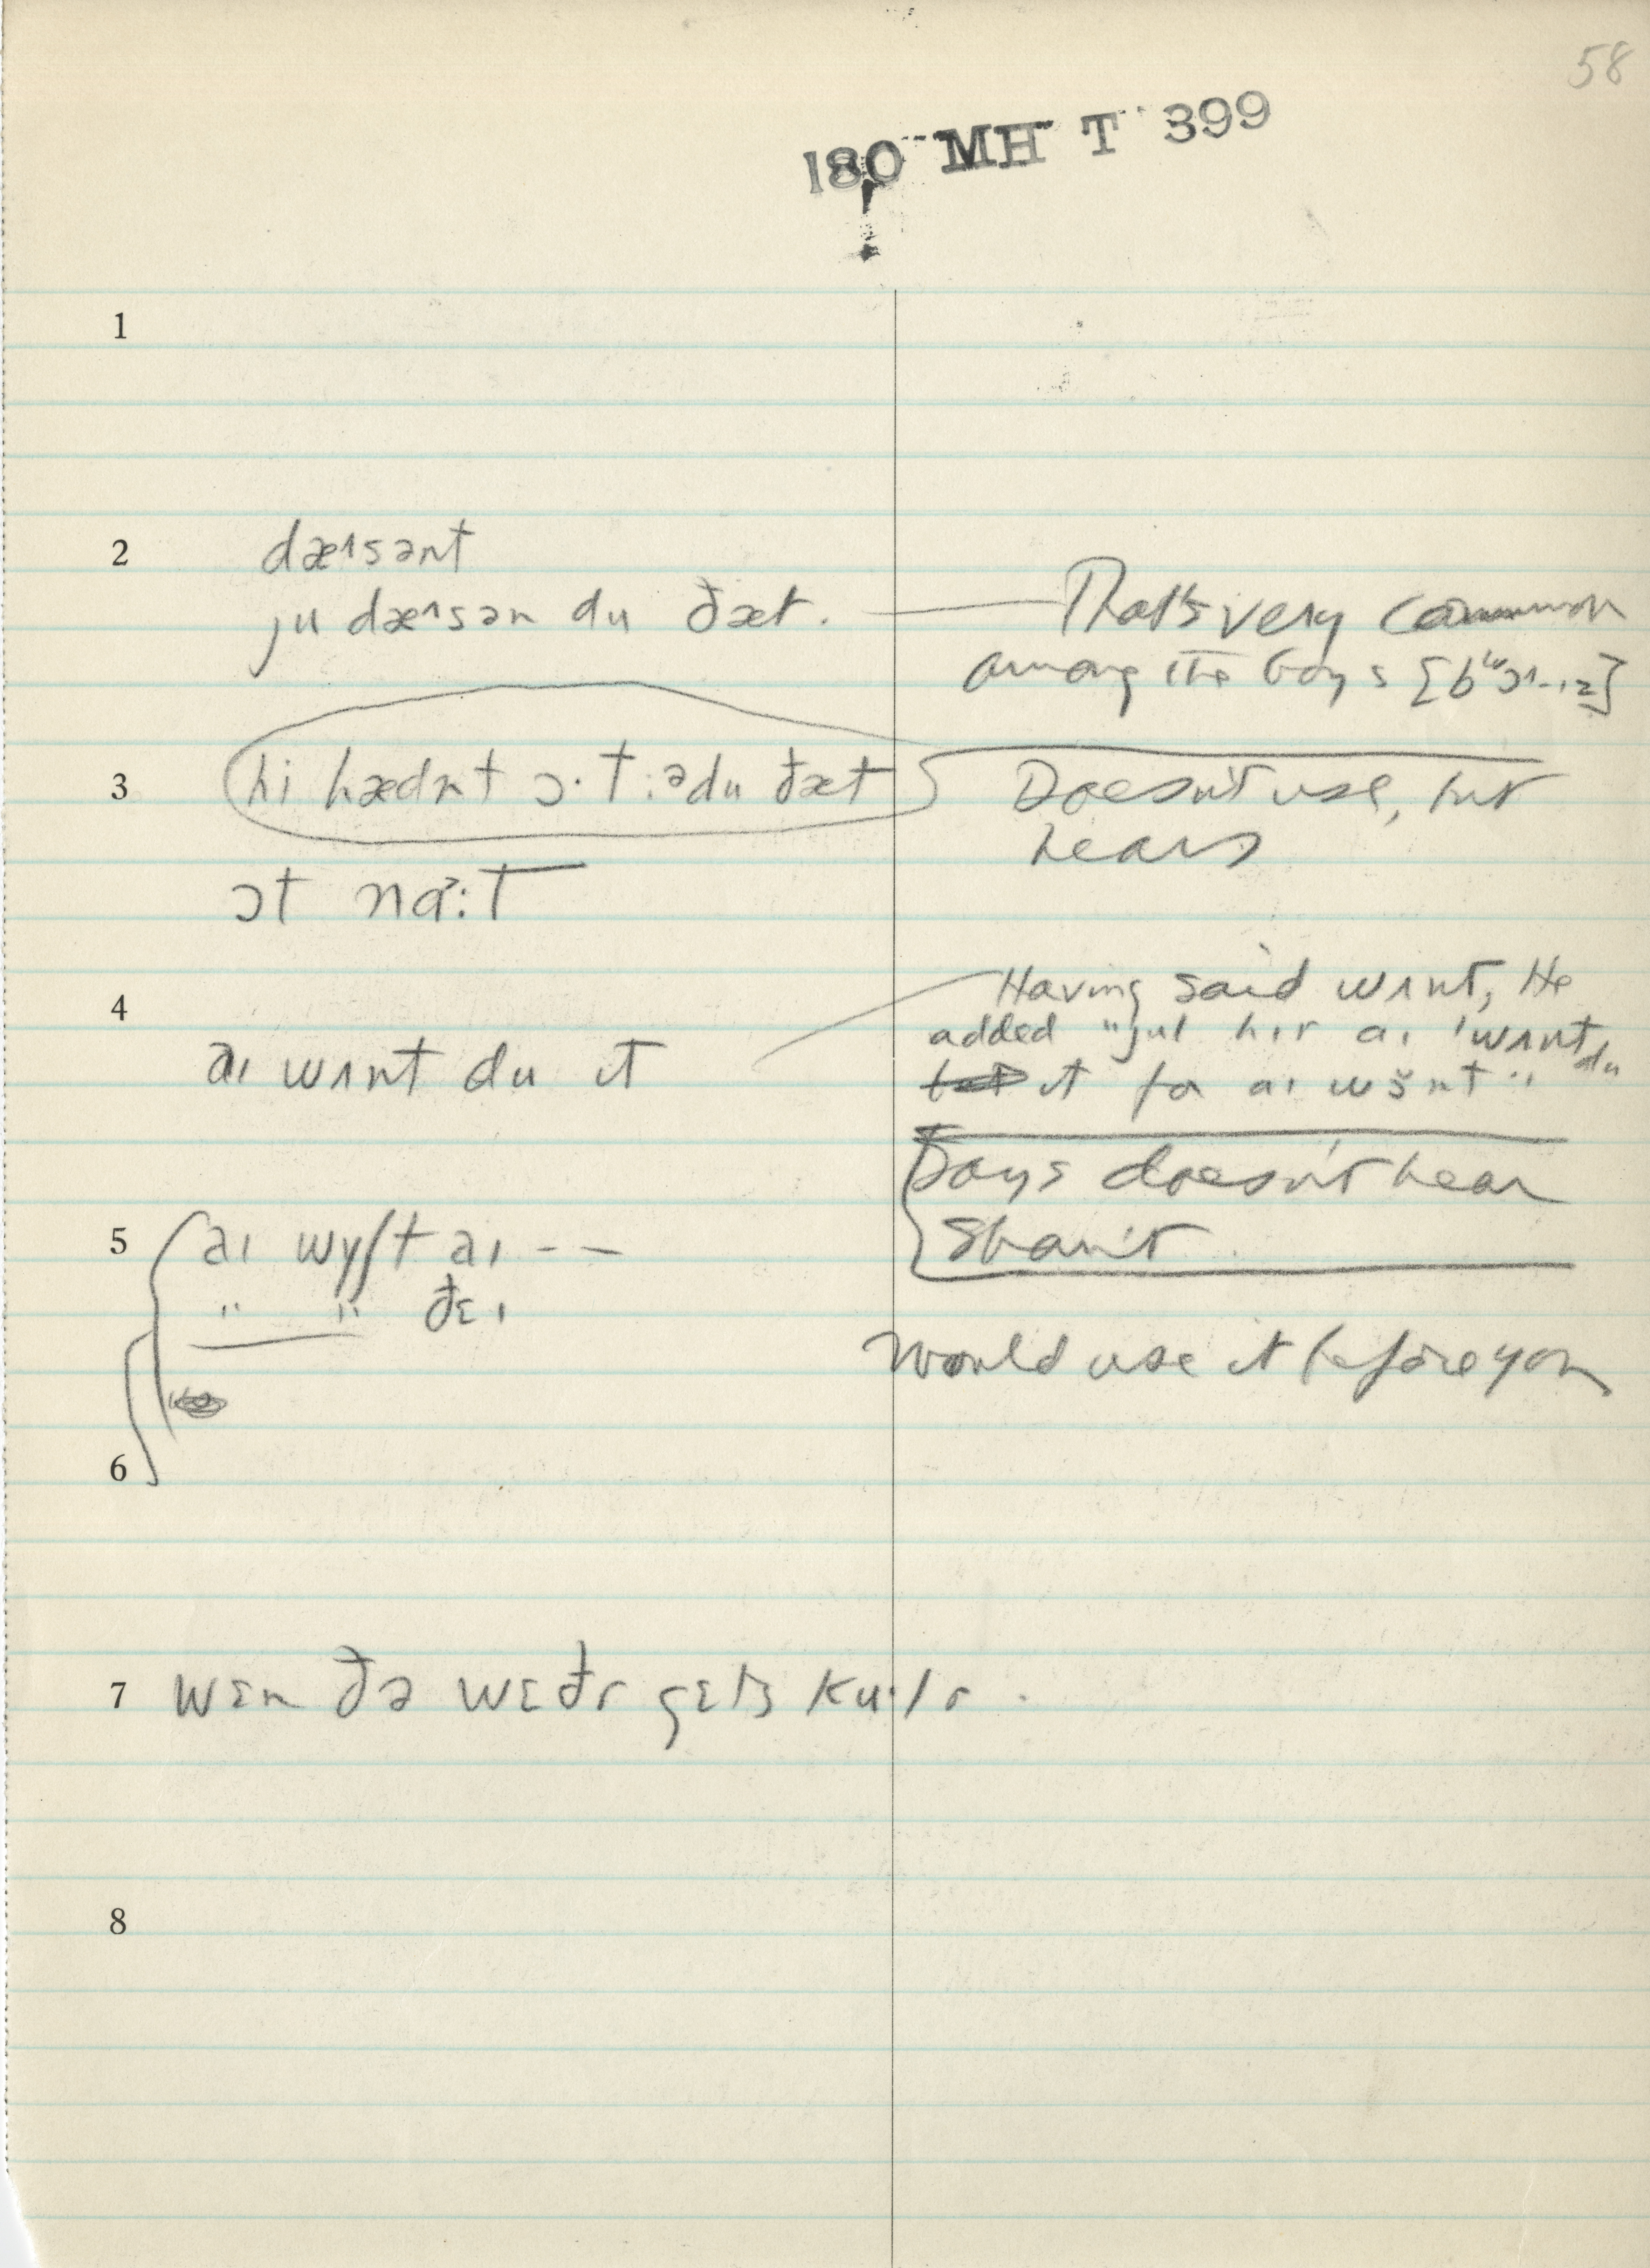 58
180 MH T 399
1
2 dæɪsənt
ju dæɪsən du ðæt. — That's very common
among the boys [bʷɔɪ-ɪz]
3 hi hædnt ɔ·t:ədu ðæt Doesn't use, but
hears
ɔt nɑ:t
4 Having said wɪnt, He
added "jul hɪr aɪ 'wɪnt du
it fɚ aɪ wɪnt"
aɪ wɪnt du ɪt
Says doesn't hear
Shan't
5 aɪ wyʃt aɪ - -
" " ðɛɪ
Would use it before you
6
7 wɛn ðə wɛðr gɛts ku·lr.
8